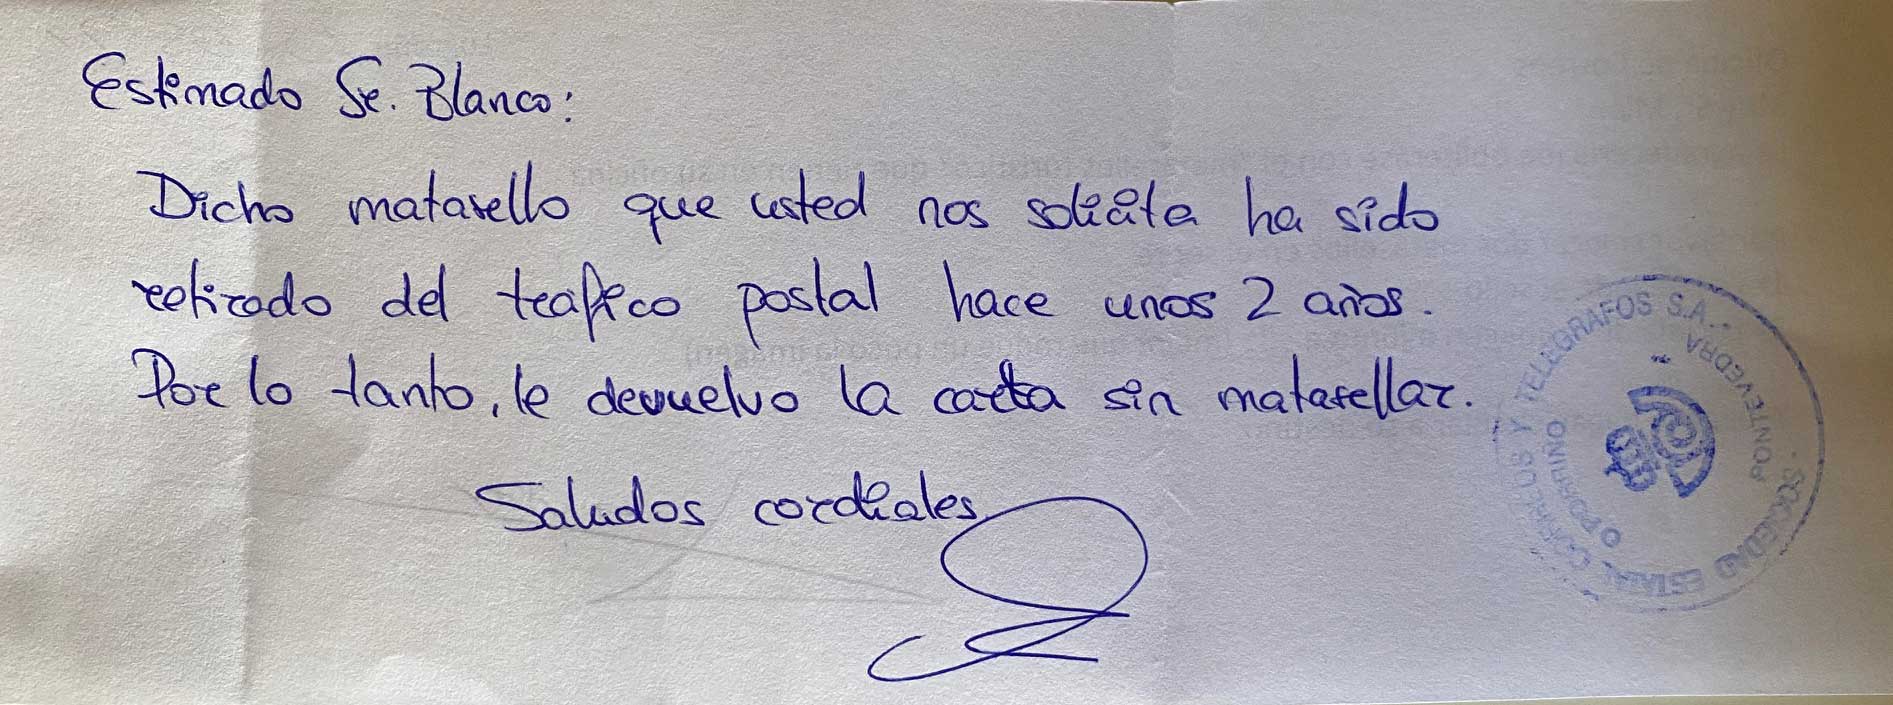 Estimado Sr. Blanco:
Dicho matasello que usted nos solicita ha sido
retirado del trafico postal hace unos 2 años.
Por lo tanto, le devuelvo la carta sin matasellar.
Saludos cordiales
SOCIEDAD ESTATAL CORREOS Y TELEGRAFOS S.A.
O PORRIÑO
PONTEVEDRA